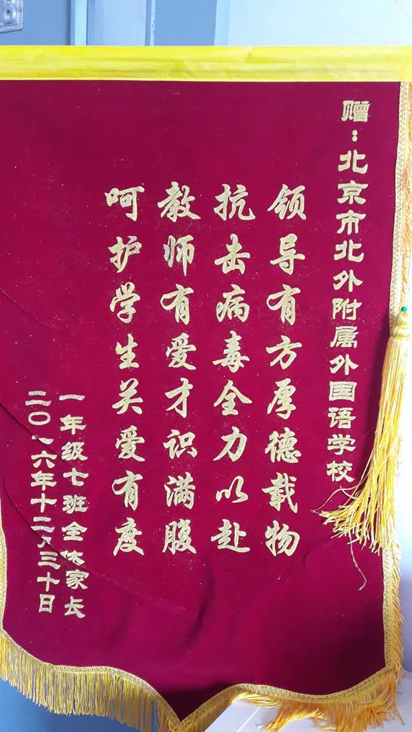 赠：北京市北外附属外国语学校
领导有方厚德载物
抗击病毒全力以赴
教师有爱才识满腹
呵护学生关爱有度
一年级七班全体家长
二〇一六年十二月三十日